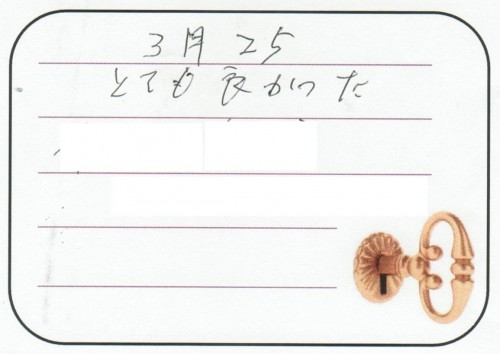 3月25
とても良かった